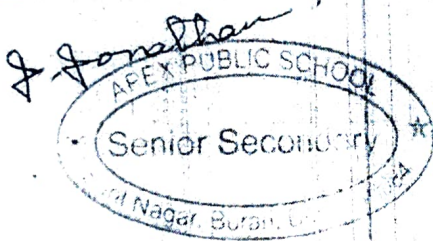 J. Jonathan
APEX PUBLIC SCHOOL
Senior Secondary
Nagar, Burari,